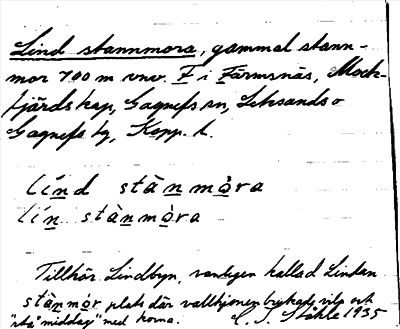 Lind stannmora, gammal stann-
mor 700 m vnv. F i Färmsnäs, Mock-
fjärds kap, Gagnefs sn, Leksands o
Gagnefs tg, Kopp. l.
línd stànmòra
lín stànmòra
Tillhör Lindbyn, vanligen kallad Lindan
stànmòr plats där vallhjonen brukade vila och
"äta" middag" med korna. C. I. Ståhle 1935